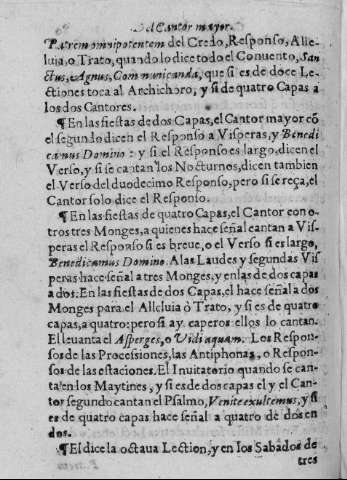 Del Cantor mayor.
Patrem omnipotentem del Credo, Responso, Alle-
luia, o Trato, quando lo dice todo el Conuento, San
ctus, Agnus, Communicanda, que si es de doce Le-
ctiones toca al Archichoro; y si de quatro Capas a
los dos Cantores.
¶En las fiestas de dos Capas, el Cantor mayor cõ
el segundo dicen el Responso a Visperas, y Benedi
camus Domino: y si el Responso es largo, dicen el
Verso, y si se cantan los Nocturnos, dicen tambien
el Verso del duodecimo Responso, pero si se reça, el
Cantor solo dice el Responso.
¶En las fiestas de quatro Capas, el Cantor con o-
tros tres Monges, a quienes hace señal cantan a Vis-
peras el Responso si es breue, o el Verso si es largo,
Benedicamus Domino. A las Laudes y segundas Vis
peras hace señal a tres Monges, y en las de dos capas
a dos. En las fiestas de dos Capas, el hace señal a dos
Monges para el Alleluia ò Trato, y si es de quatro
capas, a quatro: pero si ay caperos ellos lo cantan.
El leuanta el Asperges, o Vidi aquam. Los Respon-
sos de las Processiones, las Antiphonas, o Respon-
sos de las estaciones. El Inuitatorio quando se can-
ta en los Maytines, y si es de dos capas el y el Can-
tor segundo cantan el Psalmo, Venite exultemus, y si
es de quatro capas hace señal a quatro de dos en
dos.
¶El dice la octaua Lection, y en los Sabados de
tres